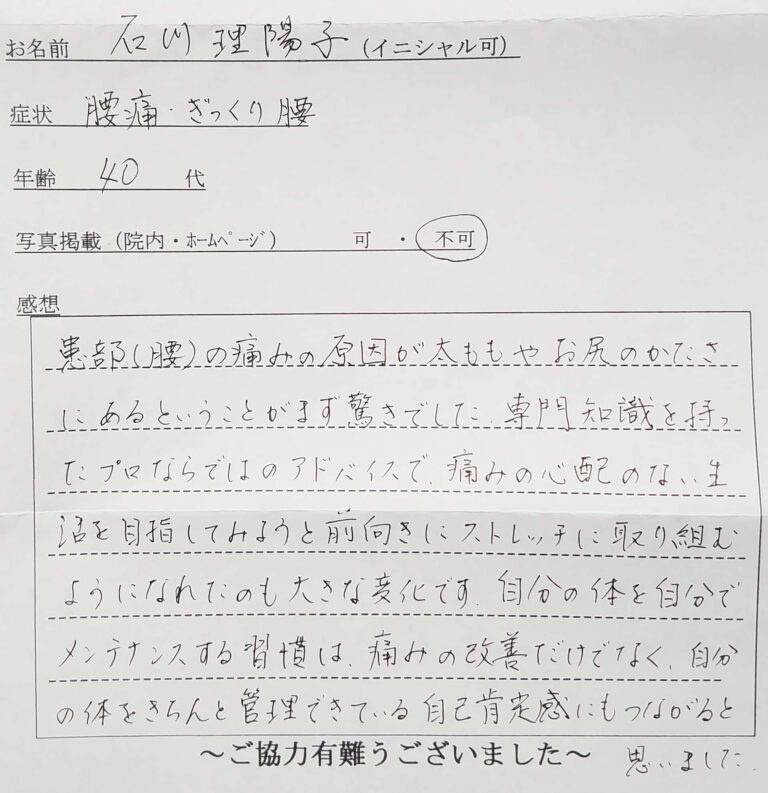 お名前 石川 理陽子 (イニシャル可)
症状 腰痛・ぎっくり腰
年齢 40 代
写真掲載 (院内・ホームページ) 可 ・ 不可
感想
患部(腰)の痛みの原因が太ももや お尻のかたさ
にあるということがまず驚きでした。専門知識を持っ
たプロならではのアドバイスで、痛みの心配のない生
活を目指してみようと前向きにストレッチに取り組む
ようになれたのも大きな変化です。自分の体を自分で
メンテナンスする習慣は、痛みの改善だけでなく、自分
の体をきちんと管理できている自己肯定感にもつながると
思いました。
～ご協力有難うございました～